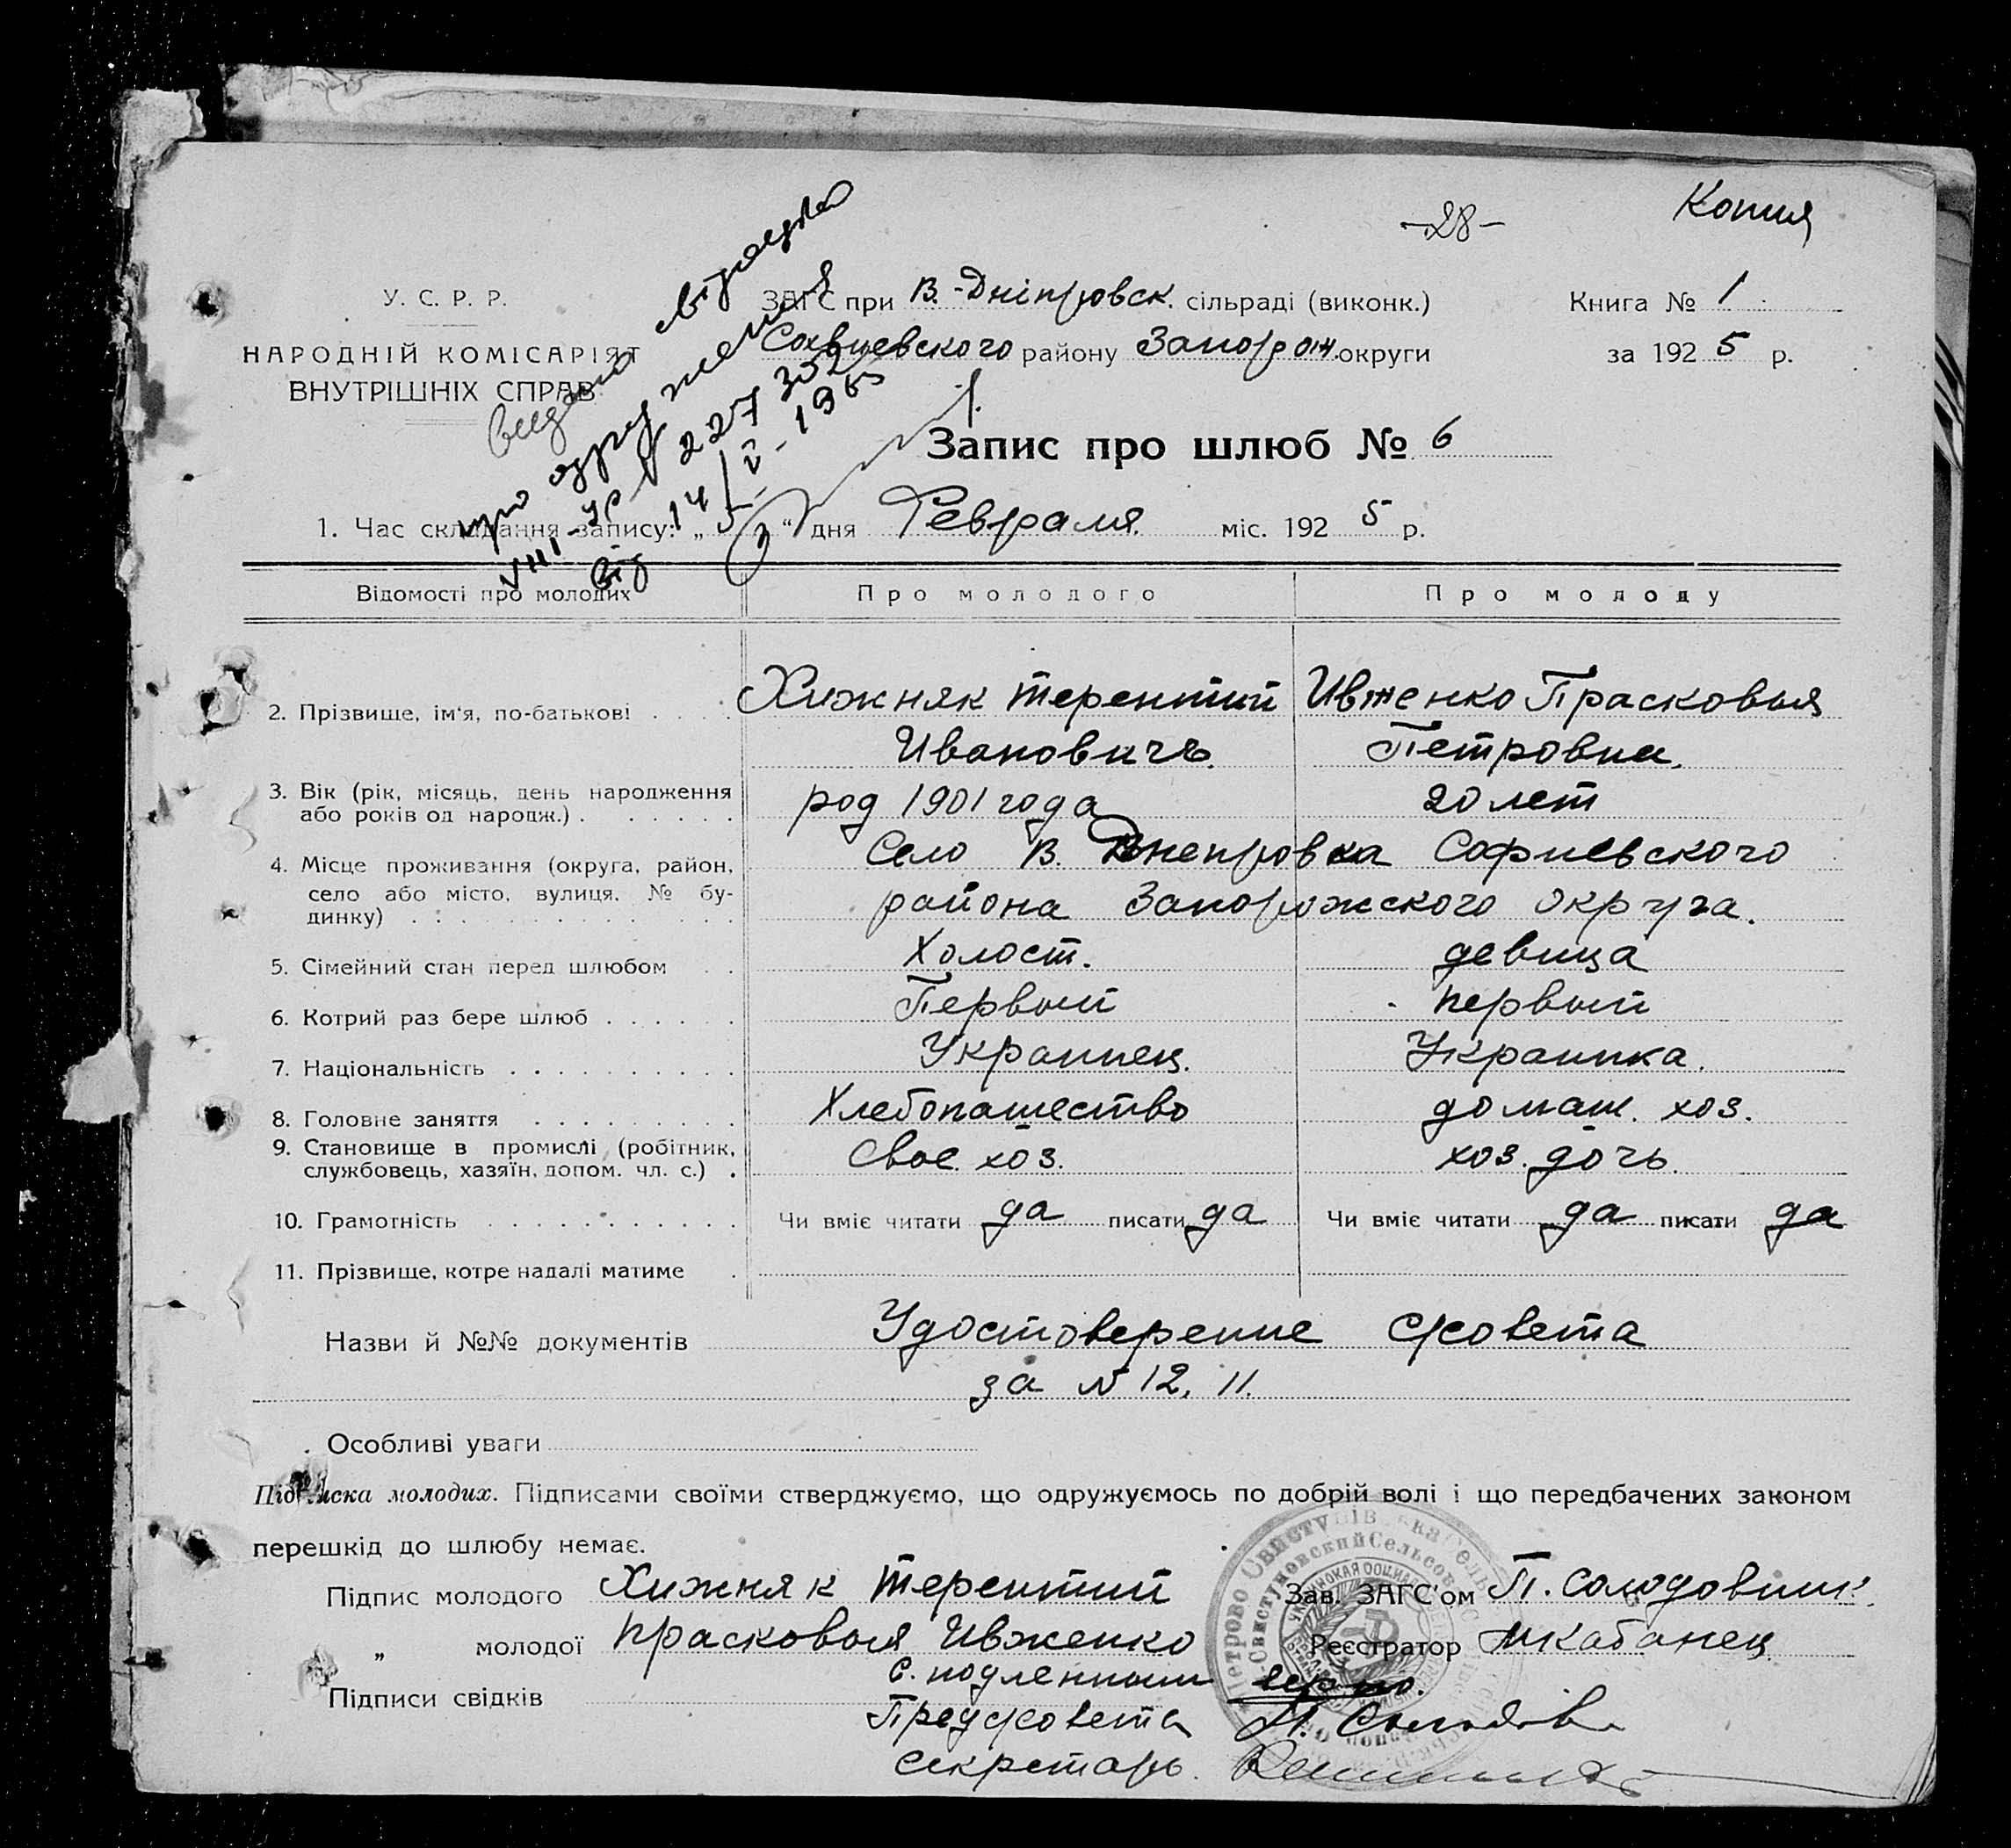 -28-
Копия
У. С. Р. Р.
НАРОДНІЙ КОМІСАРІЯТ
ВНУТРІШНІХ СПРАВ
ЗАГС при В.-Дніпровск. сільраді (виконк.)
району Запорож. округи
Книга № 1
за 1925 р.
про одруження
227
14/V-1965
від
Запис про шлюб № 6
1. Час складання запису: „ “ дня Февраля. міс. 1925 р.
Відомості про молодих
Про молодого
Про молоду
2. Прізвище, ім'я, по-батькові
Хижняк Терентий
Ивженко Прасковья
Ивановичъ.
Петровна.
3. Вік (рік, місяць, день народження або років од народж.)
род 1901 года
20 лет
4. Місце проживання (округа, район, село або місто, вулиця, № будинку)
Село В. Днепровка Софиевского
района Запорожского округа.
5. Сімейний стан перед шлюбом
Холост.
девица
6. Котрий раз бере шлюб
Первый
первый
7. Національність
Украинец.
Украинка.
8. Головне заняття
Хлебопашество
домаш. хоз.
9. Становище в промислі (робітник, службовець, хазяїн, допом. чл. с.)
Свое хоз.
хоз. дочь.
10. Грамотність
Чи вміє читати да писати да
Чи вміє читати да писати да
11. Прізвище, котре надалі матиме
Назви й №№ документів Удостоверение с/совета
за № 12, 11.
Особливі уваги
Підписка молодих. Підписами своїми стверджуємо, що одружуємось по добрій волі і що передбачених законом
перешкід до шлюбу немає.
Підпис молодого Хижняк Терентий
Зав. ЗАГС'ом П. Солодовник
„ молодої Прасковья Ивженко
Реєстратор Кабанец
Підписи свідків
С подленным верно.
Пред с/совета
Секретарь.